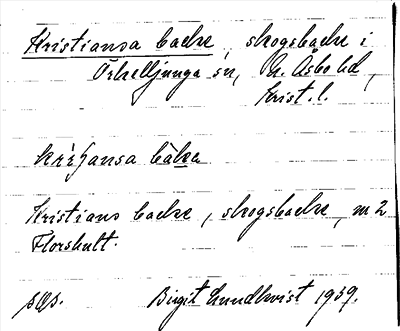 Kristiansa backe, skogsbacke i
Örkelljunga sn, N. Åsbo hd,
Krist. l.
Kristians backe, skogsbacke, m 2
Florshult.
Birgit Lundkvist 1939.